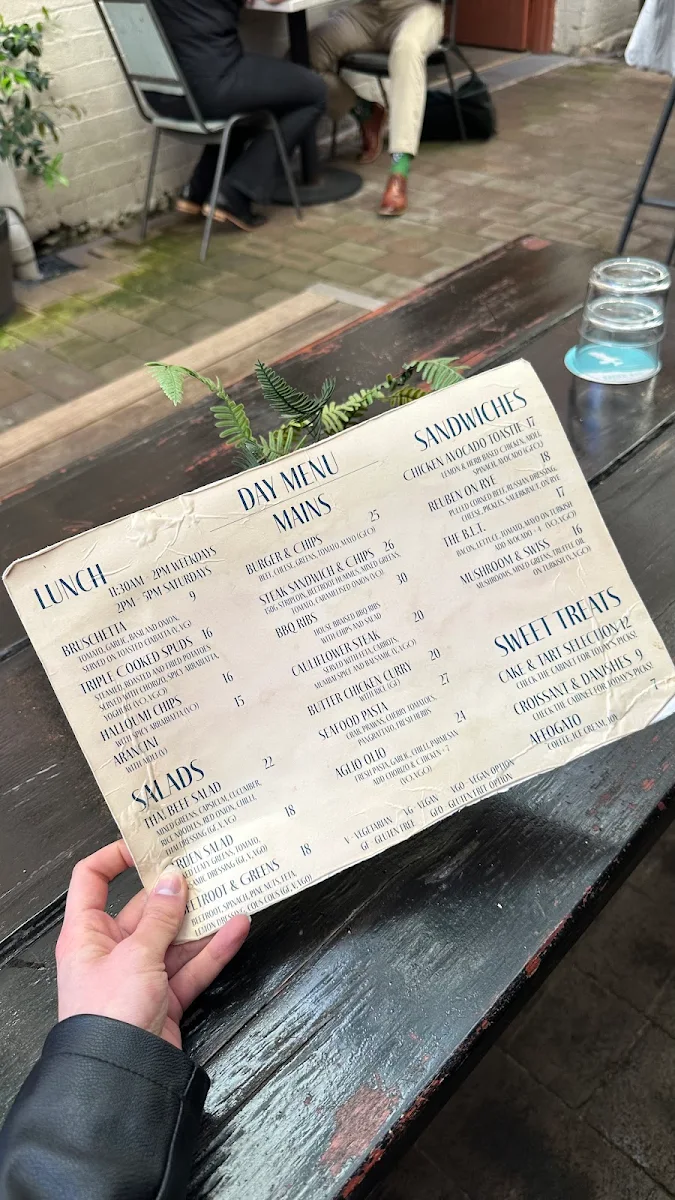 DAY MENU
LUNCH
11:30AM - 2PM WEEKDAYS
2PM - 5PM SATURDAYS
BRUSCHETTA 9
TOMATO, GARLIC, BASIL AND ONION,
SERVED ON TOASTED CIABATTA (V, VG)
TRIPLE COOKED SPUDS 16
STEAMED, ROASTED AND FRIED POTATOES,
SERVED WITH CHORIZO, SPICY ARRABIATA,
YOGHURT (VO, VGO)
HALLOUMI CHIPS 16
WITH SPICY ARRABIATA
ARANCINI 15
WITH
SALADS
THAI BEEF SALAD 22
MIXED GREENS, CAPSICUM, CUCUMBER,
RICE NOODLES, RED ONION, CHILLI,
THAI DRESSING
SALAD 18
LEAFY GREENS, TOMATO,
DRESSING
BEETROOT & GREENS 18
BEETROOT, SPINACH, PINE NUTS, FETA,
LEMON DRESSING, COUS COUS
MAINS
BURGER & CHIPS 25
BEEF, CHEESE, GREENS, TOMATO, MAYO (GFO)
STEAK SANDWICH & CHIPS 26
STRIPLOIN, BEETROOT HUMMUS, MIXED GREENS,
TOMATO, CARAMELISED ONION
BBQ RIBS 30
HOUSE BRAISED BBQ RIBS
WITH CHIPS AND SALAD
CAULIFLOWER STEAK 20
SERVED
AND BALSAMIC (V, VGO)
BUTTER CHICKEN CURRY 20
WITH RICE (GF)
SEAFOOD PASTA 27
PRAWNS, CHERRY TOMATOES,
PANGRITATO, FRESH HERBS
AGLIO OLIO 24
FRESH PASTA, GARLIC, CHILLI, PARMESAN
ADD CHORIZO & CHICKEN + 7
(VO, VGO)
SANDWICHES
CHICKEN AVOCADO TOASTIE 17
LEMON & HERB BASED CHICKEN, AIOLI,
SPINACH, AVOCADO (GFO)
REUBEN ON RYE 18
PULLED CORNED BEEF, RUSSIAN DRESSING,
CHEESE, PICKLES, SAUERKRAUT, ON RYE
THE B.L.T. 17
BACON, LETTUCE, TOMATO, MAYO ON TURKISH
ADD AVOCADO + 4 (VO, VGO)
MUSHROOM & SWISS 16
MUSHROOMS, MIXED GREENS, TRUFFLE OIL
ON TURKISH (V, VGO)
SWEET TREATS
CAKE & TART SELECTION 12
CHECK THE CABINET FOR TODAY'S PICKS!
CROISSANT & DANISHES 9
CHECK THE CABINET FOR TODAY'S PICKS!
AFFOGATO 7
COFFEE, ICE CREAM, JOY.
V - VEGETARIAN VG - VEGAN VGO - VEGAN OPTION
GF - GLUTEN FREE GFO - GLUTEN FREE OPTION